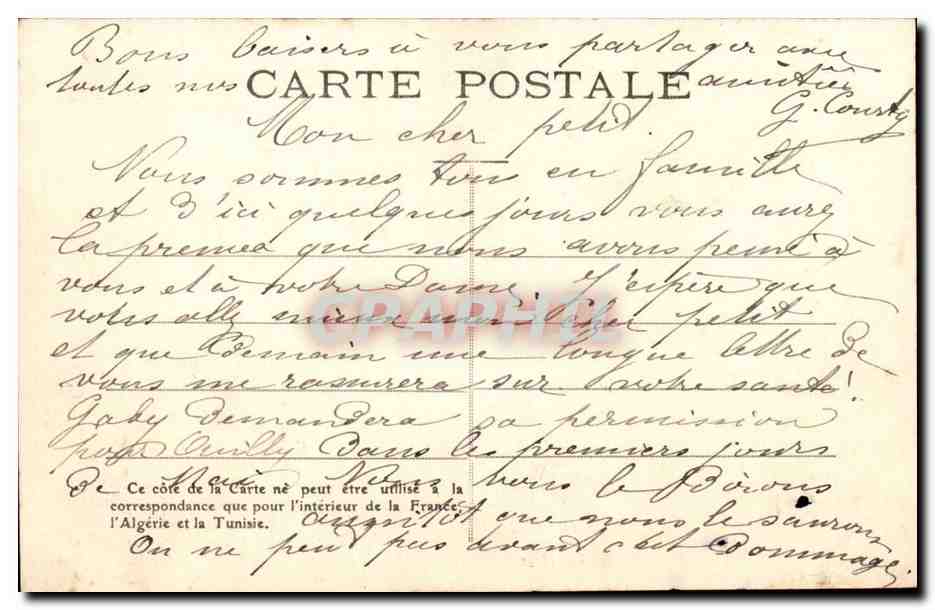 Bons baisers à vous partager avec
toutes nos CARTE POSTALE amitiés
G. Courty
Mon cher petit.
Nous sommes tous en famille
et d'ici quelques jours vous aurez
la preuve que nous avons pensé à
vous et à votre Dame. J'espère que
vous allez mieux mon cher petit
et que demain une longue lettre de
vous me rassurera sur votre santé!
Gaby demandera sa permission
pour Ouilly dans les premiers jours
de Mai Nous vous le dirons
Ce côté de la Carte ne peut être utilisé à la
correspondance que pour l'intérieur de la France,
l'Algérie et la Tunisie.
aussitôt que nous le saurons
On ne peut pas avant c'est dommage.
CPAPHIL